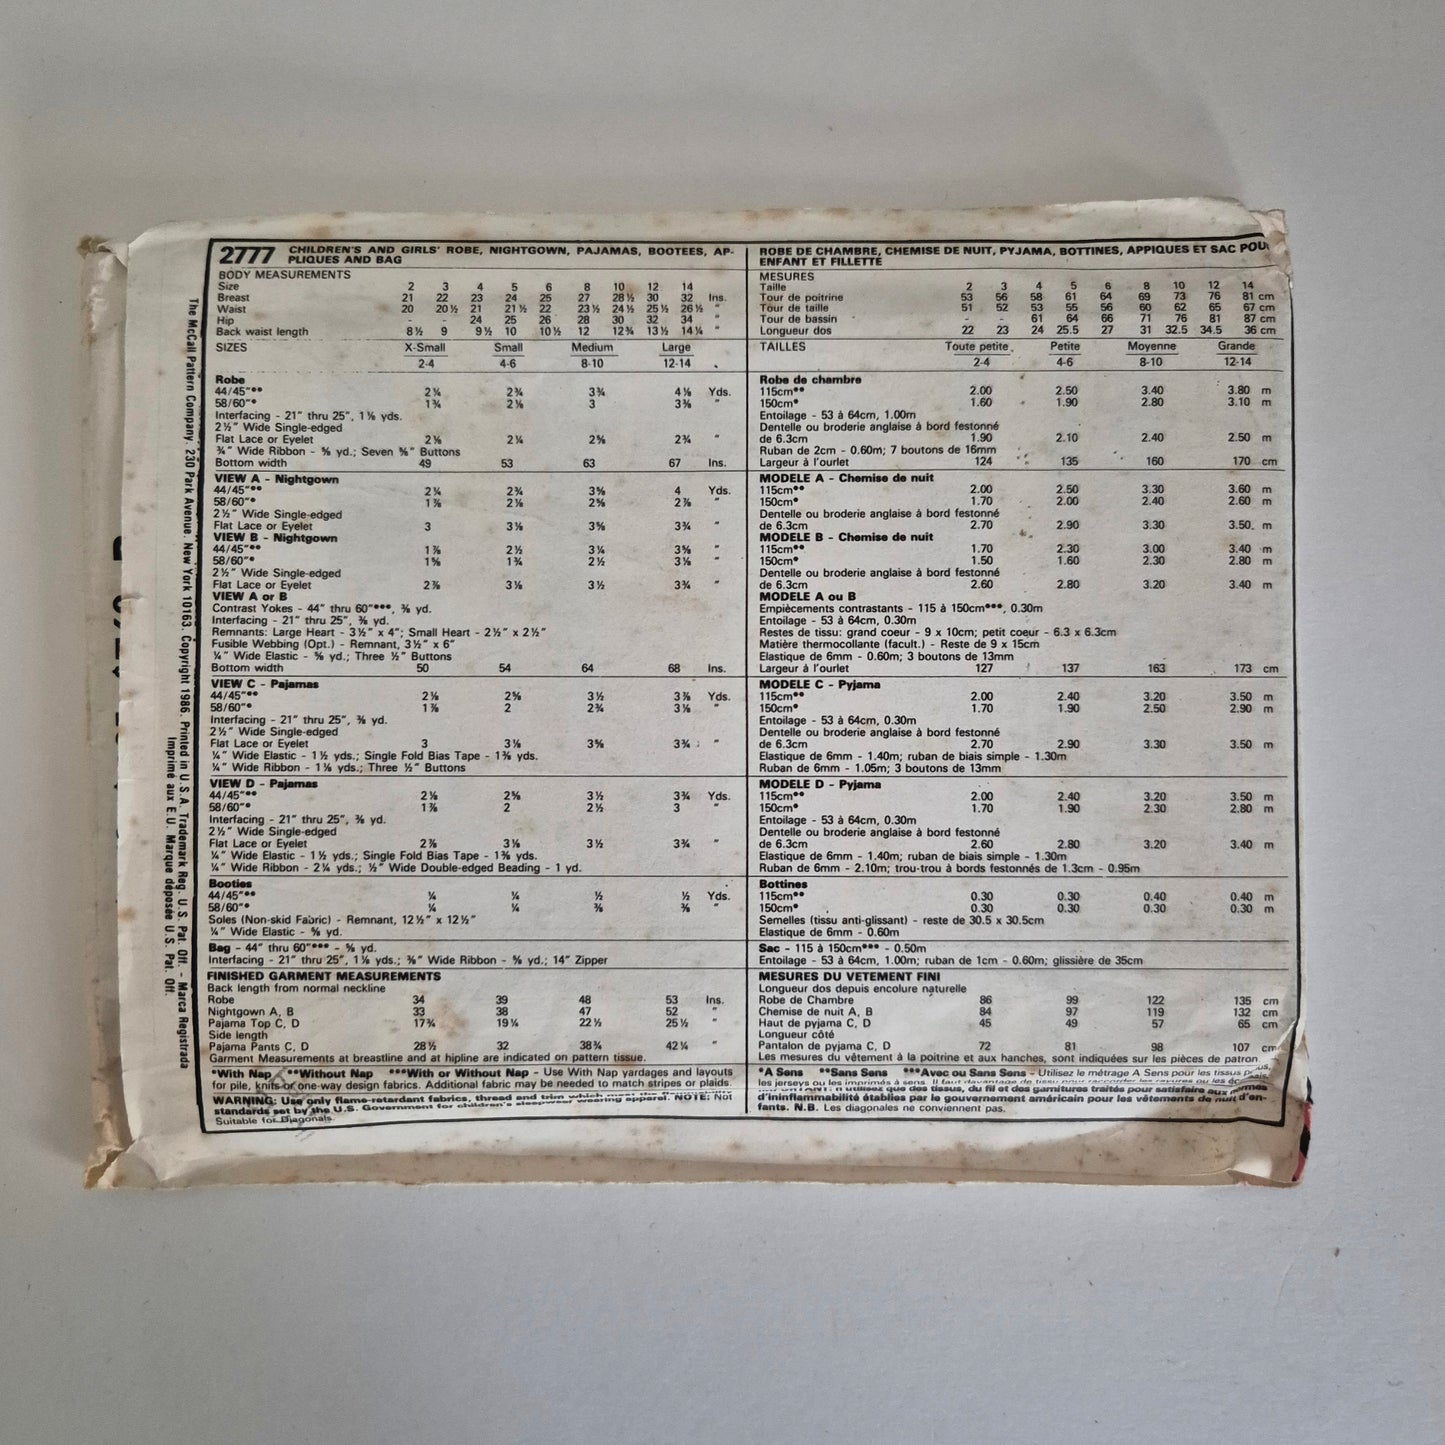 2777 CHILDREN'S AND GIRLS' ROBE, NIGHTGOWN, PAJAMAS, BOOTEES, AP-
PLIQUES AND BAG
BODY MEASUREMENTS
Size 2 3 4 5 6 8 10 12 14
Breast 21 22 23 24 25 27 28½ 30 32 Ins.
Waist 20 20½ 21 21½ 22 23½ 24½ 25½ 26½ "
Hip - - 24 25 26 28 30 32 34 "
Back waist length 8½ 9 9½ 10 10½ 12 12¾ 13½ 14¼ "
SIZES X-Small Small Medium Large
2-4 4-6 8-10 12-14
Robe
44/45"** 2¼ 2¾ 3¾ 4⅛ Yds.
58/60"* 1¾ 2⅛ 3 3⅜ "
Interfacing - 21" thru 25", 1⅛ yds.
2½" Wide Single-edged
Flat Lace or Eyelet 2⅛ 2¼ 2⅝ 2¾ "
¾" Wide Ribbon - ⅝ yd.; Seven ⅝" Buttons
Bottom width 49 53 63 67 Ins.
VIEW A - Nightgown
44/45"** 2¼ 2¾ 3⅝ 4 Yds.
58/60"* 1⅞ 2⅛ 2⅝ 2⅞ "
2½" Wide Single-edged
Flat Lace or Eyelet 3 3⅛ 3⅝ 3¾ "
VIEW B - Nightgown
44/45"** 1⅞ 2½ 3¼ 3⅝ "
58/60"* 1⅝ 1¾ 2½ 3⅛ "
2½" Wide Single-edged
Flat Lace or Eyelet 2⅞ 3⅛ 3½ 3¾ "
VIEW A or B
Contrast Yokes - 44" thru 60"***, ⅜ yd.
Interfacing - 21" thru 25", ⅜ yd.
Remnants: Large Heart - 3½" x 4"; Small Heart - 2½" x 2½"
Fusible Webbing (Opt.) - Remnant, 3½" x 6"
¼" Wide Elastic - ⅝ yd.; Three ½" Buttons
Bottom width 50 54 64 68 Ins.
VIEW C - Pajamas
44/45"** 2⅛ 2⅝ 3½ 3⅞ Yds.
58/60"* 1⅞ 2 2¾ 3⅛ "
Interfacing - 21" thru 25", ⅜ yd.
2½" Wide Single-edged
Flat Lace or Eyelet 3 3⅛ 3⅝ 3¾ "
¼" Wide Elastic - 1½ yds.; Single Fold Bias Tape - 1⅜ yds.
¼" Wide Ribbon - 1⅛ yds.; Three ½" Buttons
VIEW D - Pajamas
44/45"** 2⅛ 2⅝ 3½ 3¾ Yds.
58/60"* 1⅞ 2 2½ 3 "
Interfacing - 21" thru 25", ⅜ yd.
2½" Wide Single-edged
Flat Lace or Eyelet 2⅞ 3⅛ 3½ 3¾ "
¼" Wide Elastic - 1½ yds.; Single Fold Bias Tape - 1⅜ yds.
¼" Wide Ribbon - 2¼ yds.; ½" Wide Double-edged Beading - 1 yd.
Booties
44/45"** ¼ ¼ ½ ½ Yds.
58/60"* ¼ ¼ ⅜ ⅜ "
Soles (Non-skid Fabric) - Remnant, 12½" x 12½"
¼" Wide Elastic - ⅝ yd.
Bag - 44" thru 60"*** - ⅝ yd.
Interfacing - 21" thru 25", 1⅛ yds.; ⅜" Wide Ribbon - ⅝ yd.; 14" Zipper
FINISHED GARMENT MEASUREMENTS
Back length from normal neckline
Robe 34 39 48 53 Ins.
Nightgown A, B 33 38 47 52 "
Pajama Top C, D 17¾ 19¼ 22½ 25½ "
Side length
Pajama Pants C, D 28½ 32 38¾ 42¼ "
Garment Measurements at breastline and at hipline are indicated on pattern tissue.
*With Nap **Without Nap ***With or Without Nap - Use With Nap yardages and layouts
for pile, knits or one-way design fabrics. Additional fabric may be needed to match stripes or plaids.
WARNING: Use only flame-retardant fabrics, thread and trim which meet the NOTE: Not
standards set by the U.S. Government for children's sleepwear wearing apparel.
Suitable for Diagonals.
ROBE DE CHAMBRE, CHEMISE DE NUIT, PYJAMA, BOTTINES, APPIQUES ET SAC POU
ENFANT ET FILLETTE
MESURES
Taille 2 3 4 5 6 8 10 12 14
Tour de poitrine 53 56 58 61 64 69 73 76 81 cm
Tour de taille 51 52 53 55 56 60 62 65 67 cm
Tour de bassin - - 61 64 66 71 76 81 87 cm
Longueur dos 22 23 24 25.5 27 31 32.5 34.5 36 cm
TAILLES Toute petite Petite Moyenne Grande
2-4 4-6 8-10 12-14
Robe de chambre
115cm** 2.00 2.50 3.40 3.80 m
150cm* 1.60 1.90 2.80 3.10 m
Entoilage - 53 à 64cm, 1.00m
Dentelle ou broderie anglaise à bord festonné
de 6.3cm 1.90 2.10 2.40 2.50 m
Ruban de 2cm - 0.60m; 7 boutons de 16mm
Largeur à l'ourlet 124 135 160 170 cm
MODELE A - Chemise de nuit
115cm** 2.00 2.50 3.30 3.60 m
150cm* 1.70 2.00 2.40 2.60 m
Dentelle ou broderie anglaise à bord festonné
de 6.3cm 2.70 2.90 3.30 3.50 m
MODELE B - Chemise de nuit
115cm** 1.70 2.30 3.00 3.40 m
150cm* 1.50 1.60 2.30 2.80 m
Dentelle ou broderie anglaise à bord festonné
de 6.3cm 2.60 2.80 3.20 3.40 m
MODELE A ou B
Empiècements contrastants - 115 à 150cm***, 0.30m
Entoilage - 53 à 64cm, 0.30m
Restes de tissu: grand coeur - 9 x 10cm; petit coeur - 6.3 x 6.3cm
Matière thermocollante (facult.) - Reste de 9 x 15cm
Elastique de 6mm - 0.60m; 3 boutons de 13mm
Largeur à l'ourlet 127 137 163 173 cm
MODELE C - Pyjama
115cm** 2.00 2.40 3.20 3.50 m
150cm* 1.70 1.90 2.50 2.90 m
Entoilage - 53 à 64cm, 0.30m
Dentelle ou broderie anglaise à bord festonné
de 6.3cm 2.70 2.90 3.30 3.50 m
Elastique de 6mm - 1.40m; ruban de biais simple - 1.30m
Ruban de 6mm - 1.05m; 3 boutons de 13mm
MODELE D - Pyjama
115cm** 2.00 2.40 3.20 3.50 m
150cm* 1.70 1.90 2.30 2.80 m
Entoilage - 53 à 64cm, 0.30m
Dentelle ou broderie anglaise à bord festonné
de 6.3cm 2.60 2.80 3.20 3.40 m
Elastique de 6mm - 1.40m; ruban de biais simple - 1.30m
Ruban de 6mm - 2.10m; trou-trou à bords festonnés de 1.3cm - 0.95m
Bottines
115cm** 0.30 0.30 0.40 0.40 m
150cm* 0.30 0.30 0.30 0.30 m
Semelles (tissu anti-glissant) - reste de 30.5 x 30.5cm
Elastique de 6mm - 0.60m
Sac - 115 à 150cm*** - 0.50m
Entoilage - 53 à 64cm, 1.00m; ruban de 1cm - 0.60m; glissière de 35cm
MESURES DU VETEMENT FINI
Longueur dos depuis encolure naturelle
Robe de Chambre 86 99 122 135 cm
Chemise de nuit A, B 84 97 119 132 cm
Haut de pyjama C, D 45 49 57 65 cm
Longueur côté
Pantalon de pyjama C, D 72 81 98 107 cm
Les mesures du vêtement à la poitrine et aux hanches, sont indiquées sur les pièces de patron.
*A Sens **Sans Sens ***Avec ou Sans Sens - Utilisez le métrage A Sens pour les tissus
les jerseys ou les imprimés à sens. Il faut davantage de tissu pour raccorder les rayures ou les
n'utilisez que des tissus, du fil et des garnitures traités pour satisfaire aux normes
d'ininflammabilité établies par le gouvernement américain pour les vêtements de nuit d'en-
fants. N.B. Les diagonales ne conviennent pas.
The McCall Pattern Company, 230 Park Avenue, New York 10163. Copyright 1986. Printed in U.S.A. Trademark Reg. U.S. Pat. Off. - Marca Registrada
Imprimé aux E.U. Marque déposée U.S. Pat. Off.